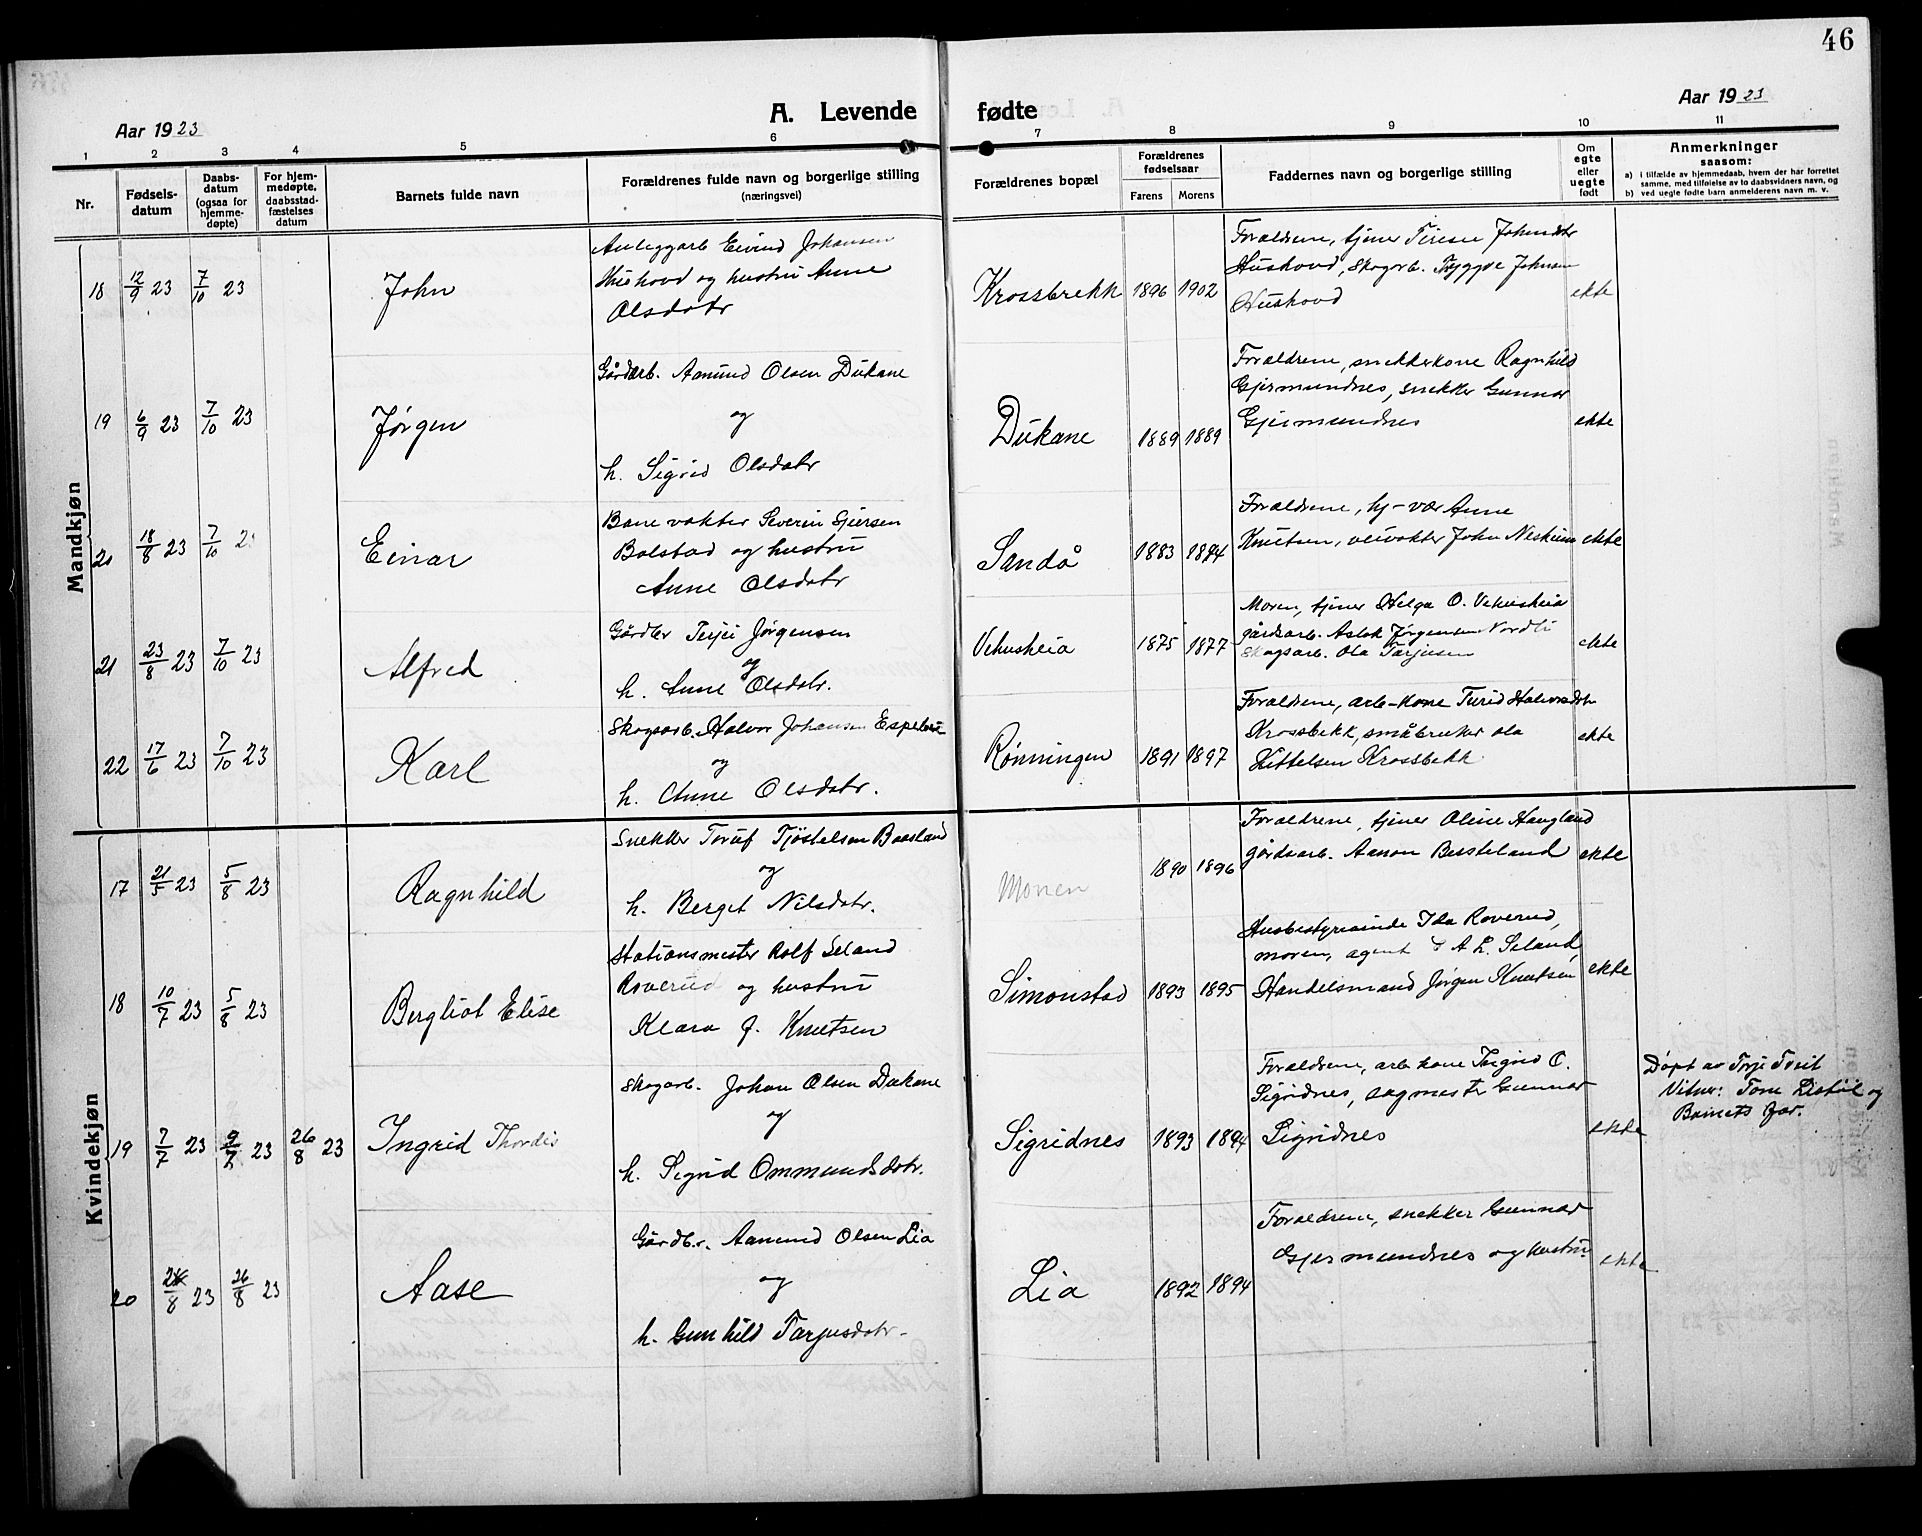 46
A. Levende fødte
Aar 1923
Aar 1923
1 2 3 4 5 6 7 8 9 10 11
Nr.
Fødsels-
datum
Daabs-
datum
(ogsaa for
hjemme-
døpte)
For hjem-
medøpte,
daabsstad-
fæstelses
datum
Barnets fulde navn
Forældrenes fulde navn og borgerlige stilling
(næringsvei)
Forældrenes bopæl
Forældrenes
fødselsaar
Farens Morens
Faddernes navn og borgerlige stilling
Om
egte
eller
uegte
født
Anmerkninger
saasom:
a) i tilfælde av hjemmedaab, hvem der har forrettet
samme, med tilføielse av to daabsvidners navn, og
b) ved uegte fødte barn anmelderens navn m. v.
Mandkjøn
18 12/9 23 7/10 23 John
Anleggarb Eivind Johansen
Hushovd og hustru Anne
Olsdatr
Krossbrekk 1896 1902
Foraldrene, tjener Johnsdtr
Hushovd, skogarb. Trygve Johnsen
Hushovd
ekte
19 6/9 23 7/10 23 Jørgen
Gårdarb. Aamund Olsen Dukane
og
h. Sigrid Olsdatr
Dukane 1889 1889
Foraldrene, snekkerkone Ragnhild
Gjermundnes, snekker Gunnar
Gjermundnes
ekte
20 18/8 23 7/10 23 Einar
Bane vokter Severin Sjursen
Bolstad og hustru
Anne Olsdatr
Sandå 1883 1894
Foraldrene, hj-vær Anne
Knutsen, veivokter John Neskim
ekte
21 23/8 23 7/10 23 Alfred
Gårdbr Terjei Jørgensen
og
h. Anne Olsdatr.
Vehusheia 1875 1877
Moren, tjener Helga O. Vehusheia
gårdsarb. Aslak Jørgensen Nordli
Skogsarb. Ola Tarjusen
ekte
22 17/6 23 7/10 23 Karl
Skogsarb. Halvor Johansen
og
h. Anne Olsdatr.
Rønningen 1891 1897
Foraldrene, arb-kone Turid Halvorsdtr
Krossbekk, småbruker Ola
Kittelsen Krossbekk
ekte
Kvindekjøn
17 21/5 23 5/8 23 Ragnhild
Snekker Toruf Tjøstelsen Baasland
og
h. Berget Nilsdatr.
Monen 1890 1896
Foraldrene, tjener Oline Haugland
gårdsarb. Aanon Bersteland
ekte
18 10/7 23 5/8 23 Bergliot Elise
Stationsmester Rolf Seland
Roverud og hustru
Klara J. Knutsen
Simonstad 1893 1895
Husbestyrerinde Ida Roverud,
moren, agent A. L. Seland,
Handelsmand Jørgen Knutsen
ekte
19 7/7 23 9/7 23 26/8 23 Ingrid Thordis
Skogarb. Johan Olsen Dukane
og
h. Sigrid Ommundsdatr.
Sigridnes 1893 1894
Foraldrene, arb kone Ingrid O.
Sigridnes, sagmester Gunnar
Sigridnes
ekte
Døpt av Terje Tveit
Vitner: Tone Listøl og
Barnets far.
20 8 23 26/8 23 Aase
Gårdbr. Aanund Olsen Lia
og
h. Gunhild Tarjusdatr.
Lia 1892 1894
Foraldrene, snekker Gunnar
Gjermundnes og hustru
ekte